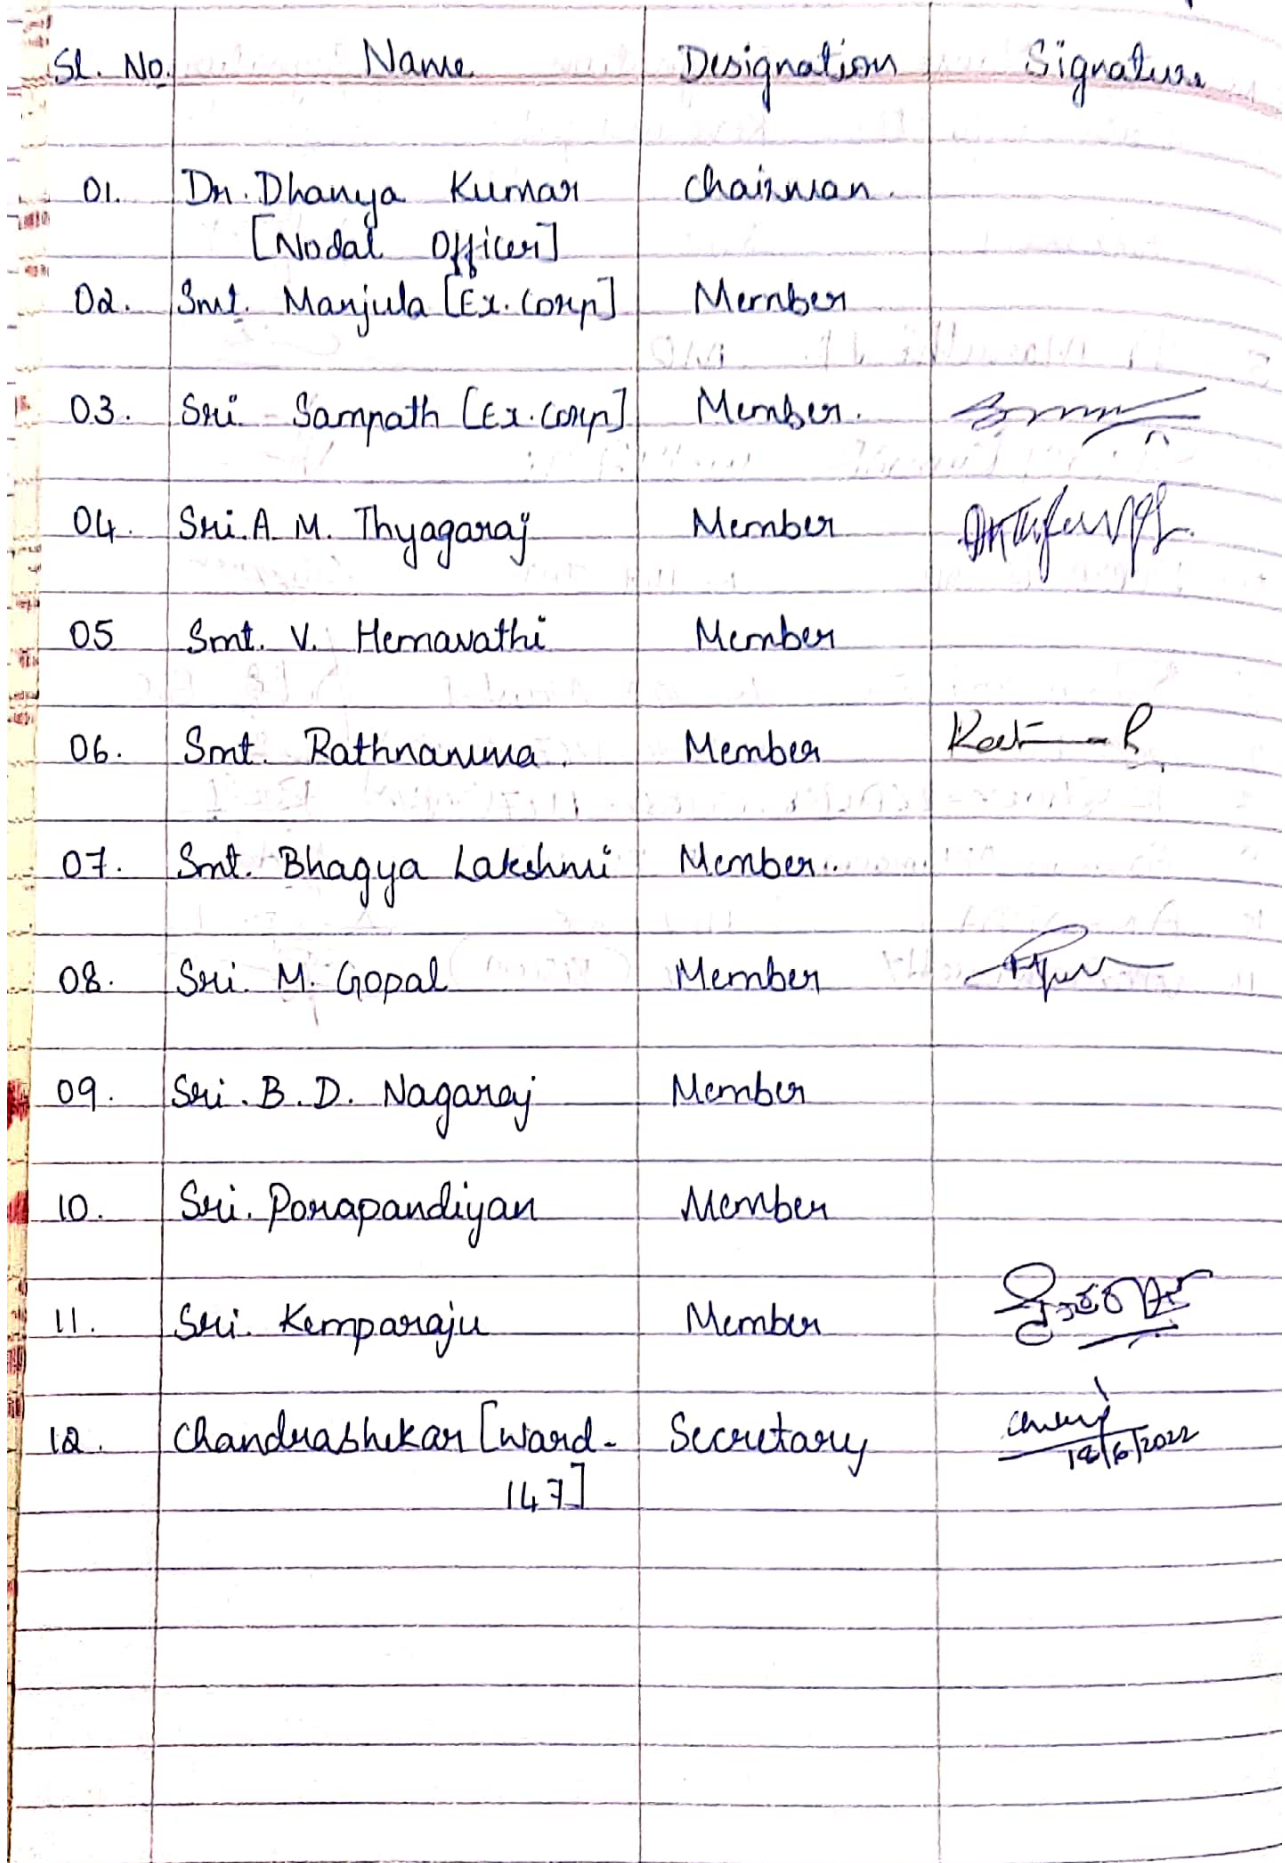 Sl. No. Name Designation Signature
01. Dr. Dhanya Kumar Chairman.
[Nodal Officer]
02. Smt. Manjula [Ex. Corp] Member
03. Sri Sampath [Ex. Corp] Member.
04. Sri. A M. Thyagaraj Member
05 Smt. V. Hemavathi Member
06. Smt. Rathnamma. Member
07. Smt. Bhagya Lakshmi Member..
08. Sri. M. Gopal Member
09. Sri. B. D. Nagaraj Member
10. Sri. Porapandiyan Member
11. Sri. Kemparaju Member
12. Chandrashekar [Ward- Secretary
147]
18/6/2022